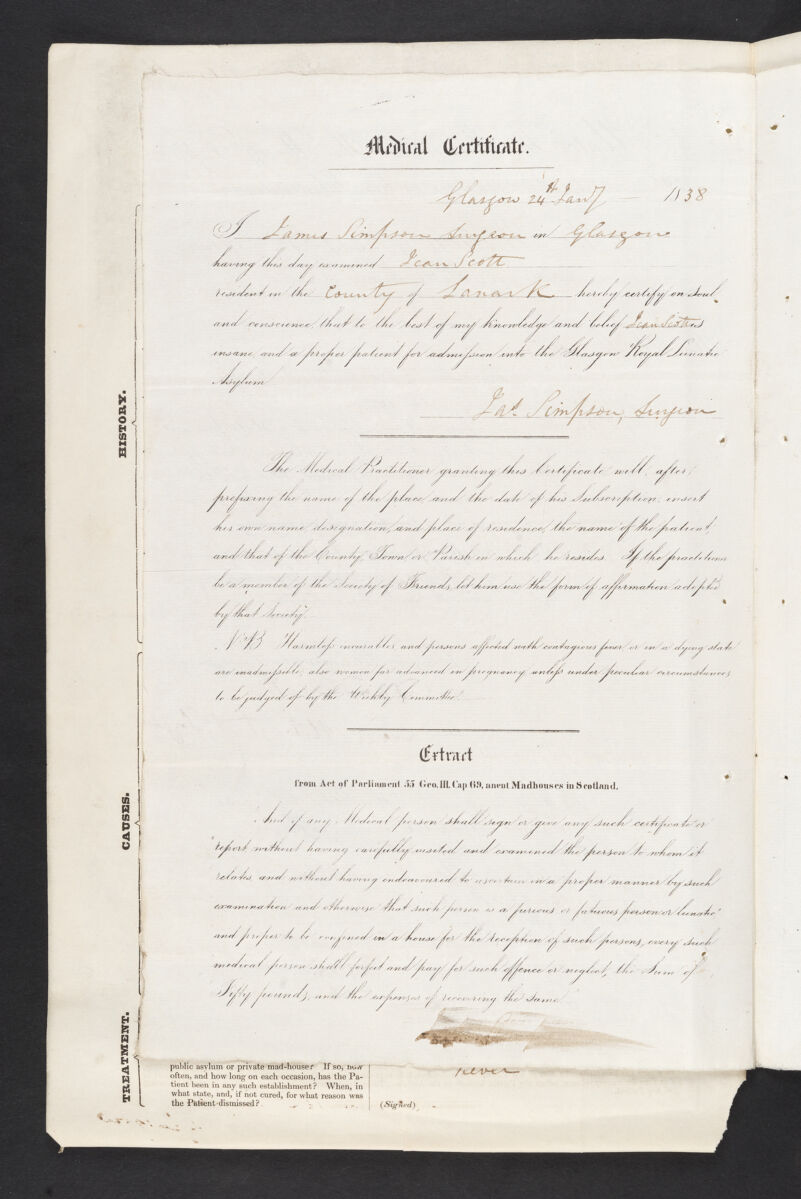 Medical Certificate.
Glasgow 24th Jany 1838
I James Simpson Surgeon in Glasgow
having this day examined Jean Scott
resident in the County of Lanark hereby certify on soul
and conscience, that to the best of my knowledge and belief Jean Scott is
insane, and a proper patient for admission into the Glasgow Royal Lunatic
Asylum
Jas. Simpson, Surgeon
The Medical Practitioner granting this Certificate will, after
prefixing the name of the place, and the date of his Subscription, insert
his own name, designation, and place of residence, the name of the patient,
and that of the County, Town, or Parish in which he resides. If the practitioner
be a member of the Society of Friends, let him use the form of affirmation adopted
by that Society.
N.B. Harmless incurables and persons affected with contagious fever or in a dying state
are inadmissible, also women far advanced in pregnancy unless under peculiar circumstances
to be judged of by the Weekly Committee.
Extract
from Act of Parliament 55 Geo. III. Cap 69, anent Madhouses in Scotland.
"And if any Medical person shall sign or give any such certificate or
"report, without having carefully visited and examined the person to whom it
relates, and without having endeavoured to ascertain in a proper manner by such
examination and otherwise that such person is a furious or fatuous person or lunatic"
and proper to be confined in a house for the reception of such persons, every such
"medical person shall forfeit and pay for such offence or neglect, the Sum of
Fifty pounds, and the expenses of recovering the same."
HISTORY.
CAUSES.
TREATMENT.
public asylum or private mad-house? If so, how
often, and how long on each occasion, has the Pa-
tient been in any such establishment? When, in
what state, and, if not cured, for what reason was
the Patient dismissed?
never
(Signed)